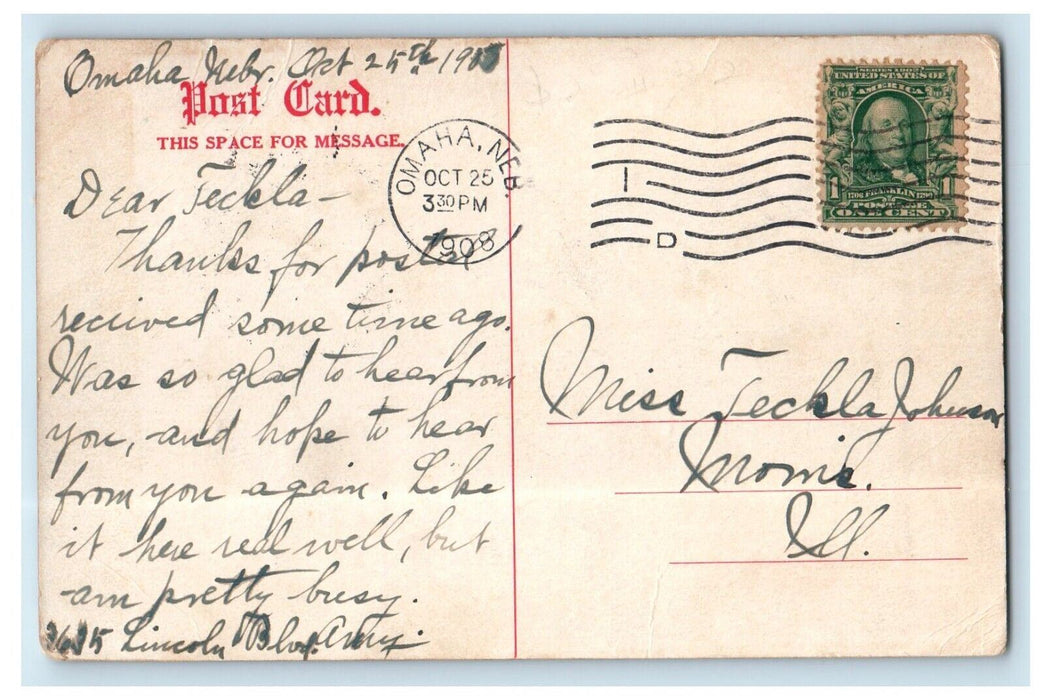 Omaha, Nebr. Oct 25th 1908
Post Card.
THIS SPACE FOR MESSAGE.
Dear Teckla-
Thanks for postal
received some time ago.
Was so glad to hear from
you, and hope to hear
from you again. Like
it here real well, but
am pretty busy.
Lincoln Blvd. Amy.
OMAHA, NEB.
OCT 25
3 30 PM
1908
1
D
SERIES 1902
UNITED STATES OF
AMERICA
1 1
1706 FRANKLIN 1790
POSTAGE
ONE CENT
Miss Teckla Johnson
Morris.
Ill.